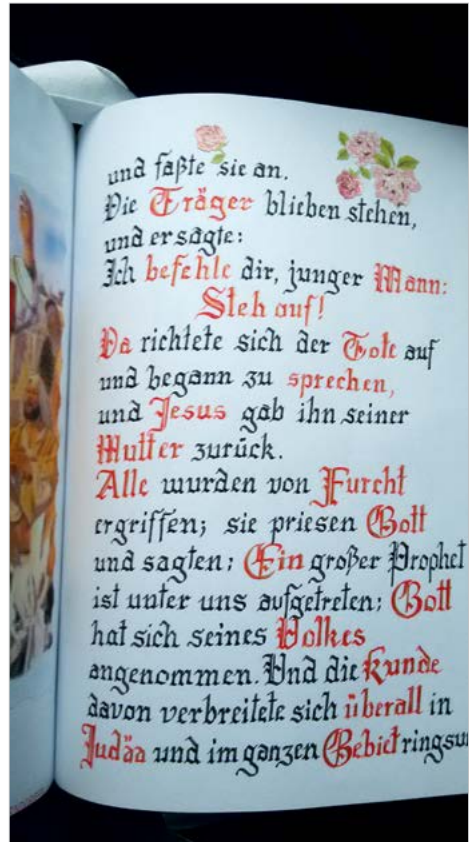 und faßte sie an.
Die Träger blieben stehen,
und er sagte:
Ich befehle dir, junger Mann:
Steh auf!
Da richtete sich der Tote auf
und begann zu sprechen,
und Jesus gab ihn seiner
Mutter zurück.
Alle wurden von Furcht
ergriffen; sie priesen Gott
und sagten: Ein großer Prophet
ist unter uns aufgetreten; Gott
hat sich seines Volkes
angenommen. Und die Kunde
davon verbreitete sich überall in
Judäa und im ganzen Gebiet ringsu